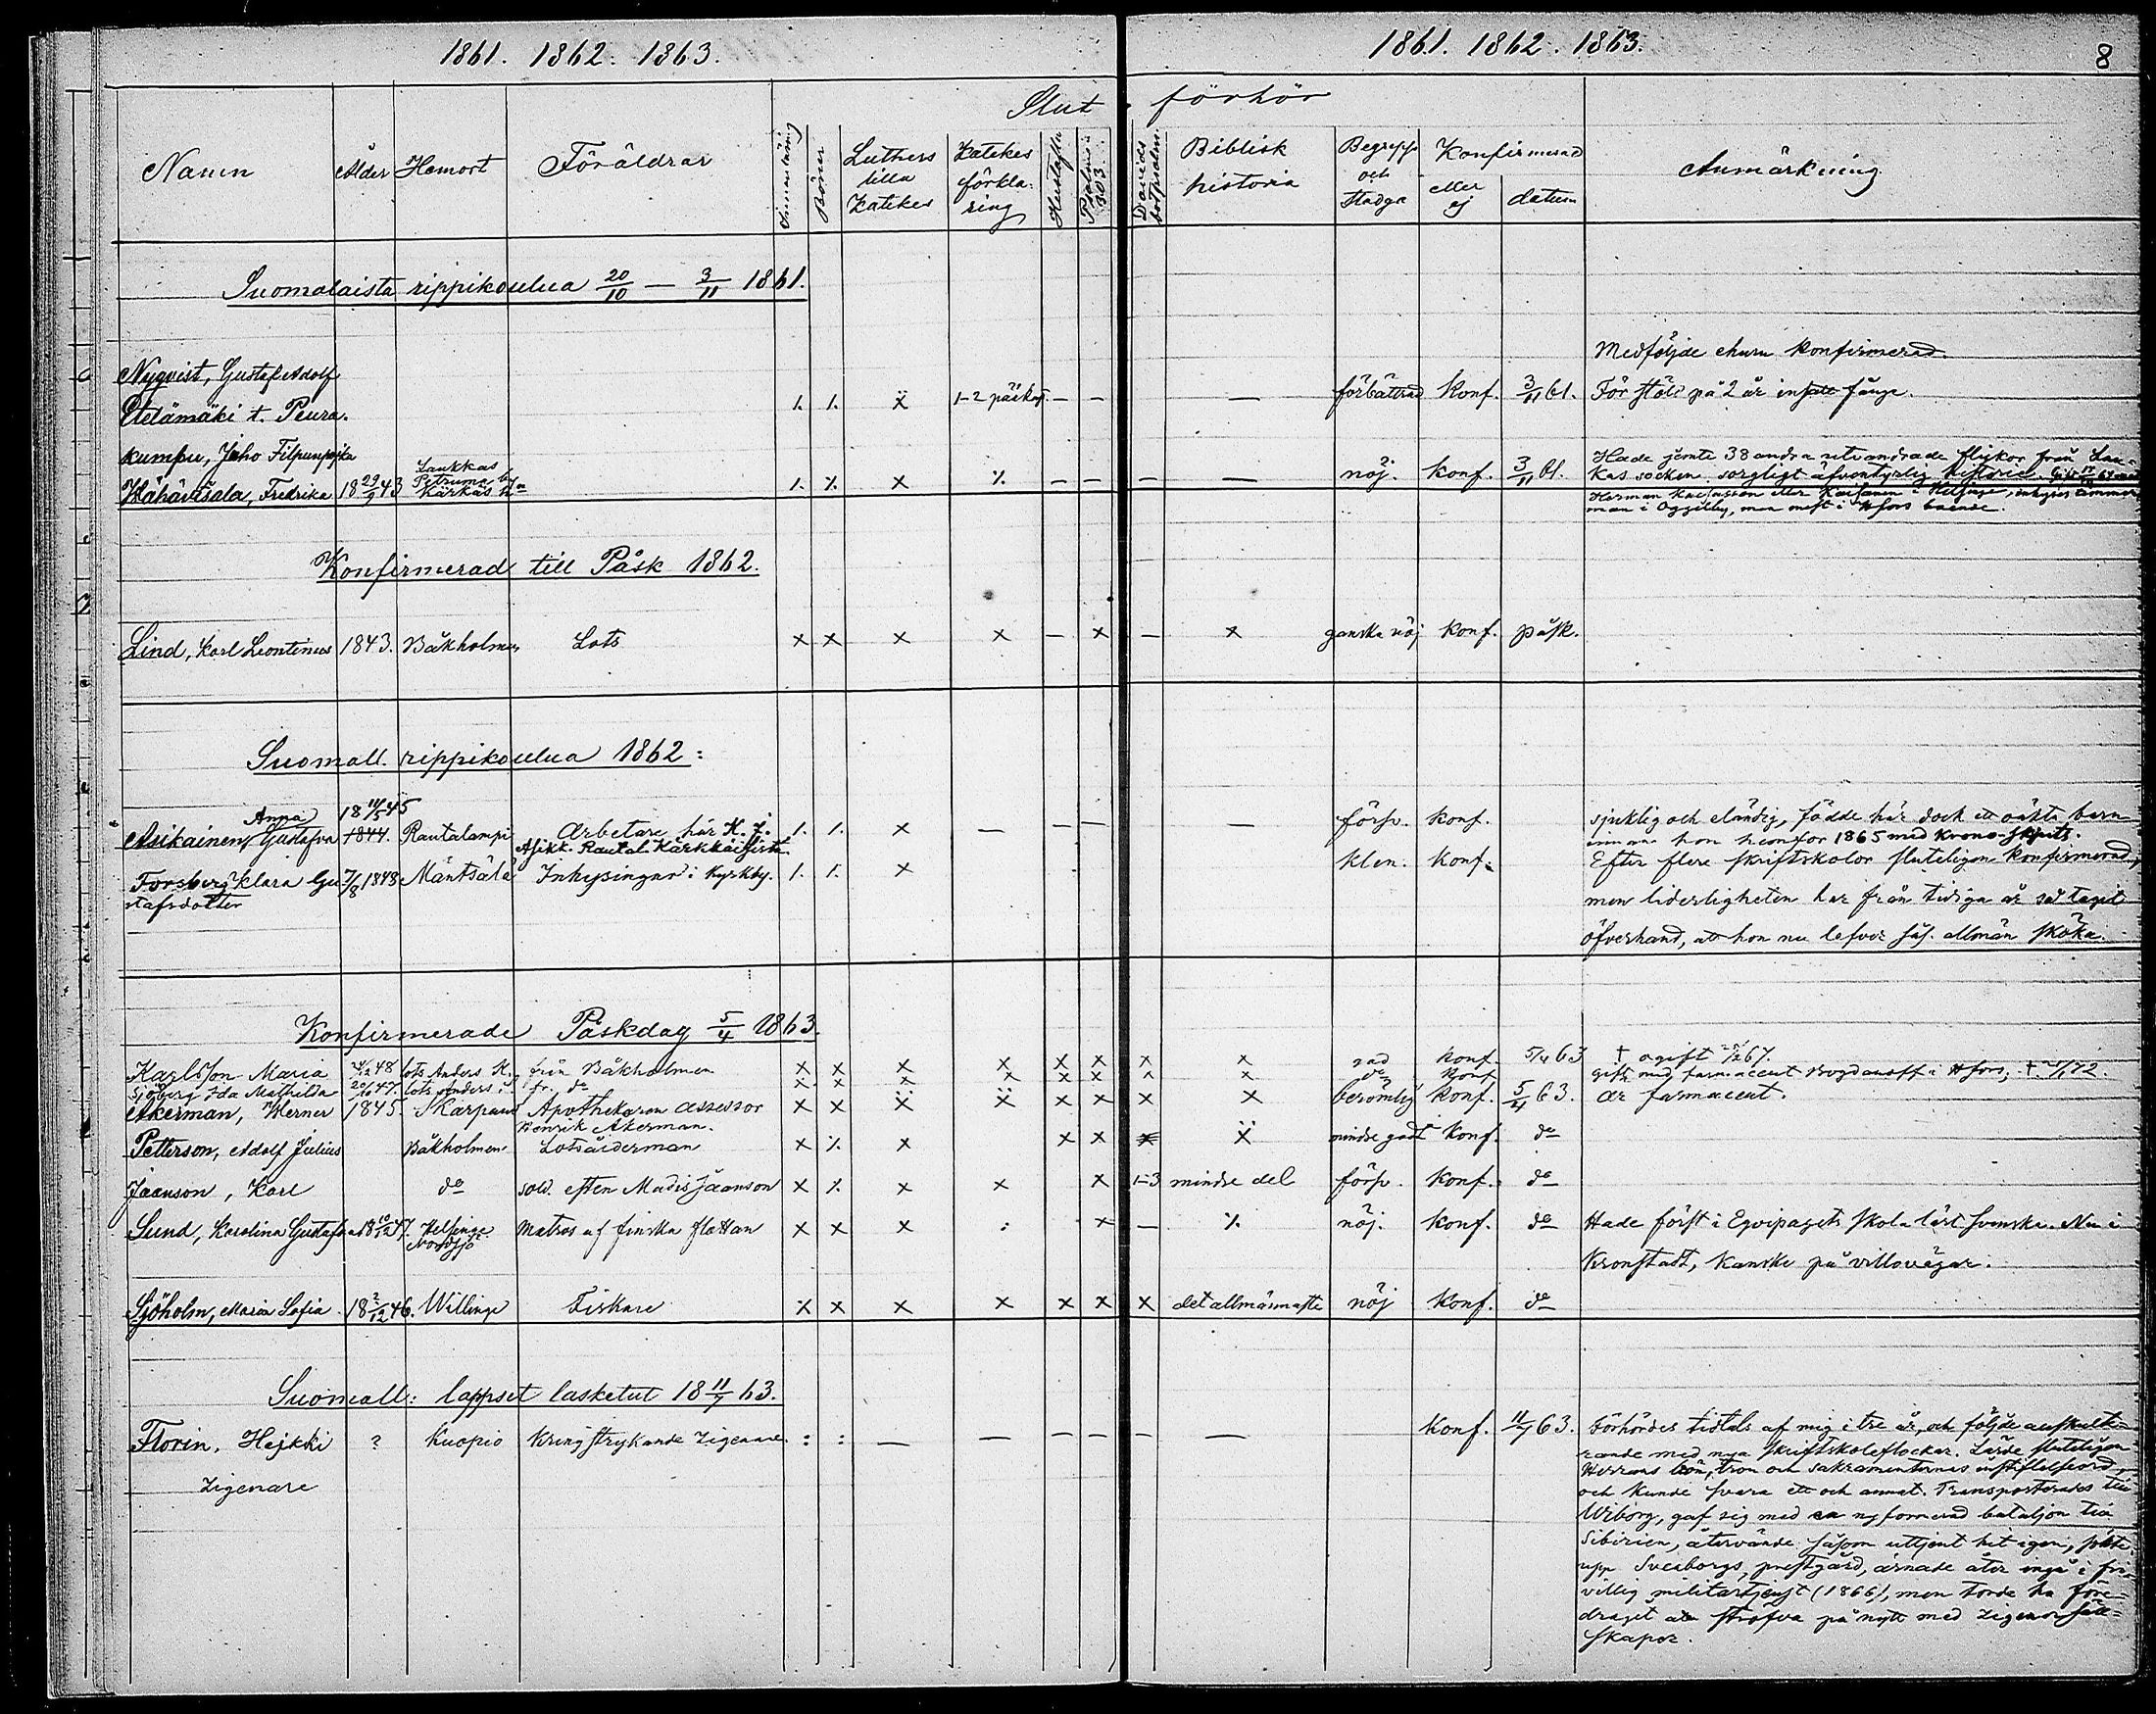 1861. 1862. 1863.
1861. 1862. 1863.
8
Slut förhör
Namn Ålder Hemort Föräldrar Innanläsning Böner Luthers lilla Katekes Katekes förklaring Hustafla Psalmer 303 Davids botpsalm. Biblisk historia Begrepp och Stadga Konfirmerad eller ej datum Anmärkning
Suomalaista rippikoulua 20/10 — 3/11 1861.
Medföljde ehuru konfirmerad
Nyqvist, Gustaf Adolf
Etelämäki t. Peura- 1. 1. x 1-2 — — — förbättrad Konf. 3/11 61. För stöld på 2 år insatt fånge.
kumpu, Juho Filpunpoika
Hade jemte 38 andra utvandrade flickor från Lau-
Hähävisala, Fredrika 18 29/9 43 Laukkas Petruma by Kärkäs 1. ·/. x ·/. — — — — nöj. konf. 3/11 61. kas socken sorgligt äfventyrlig historia.
Herman eller i Helsinge, inhyses timmer-
man i Oggelby, men mest i Hfors boende.
Konfirmerad till Påsk 1862.
Lind, Karl Leontinus 1843. Båkholmen Lots x x x x — x — x ganska nöj konf. påsk.
Suomall. rippikoulua 1862:
Anna 18 11/5 45
Asikainen, Gustafva 1844. Rautalampi Arbetare här K. 1. 1. x — — — — försv. konf. sjuklig och eländig, födde här dock ett oäkta barn
Asikk. Rautal. hon hemfor 1865 med Krono-skjuts.
Forsberg Klara Gu- 7/8 1848 Mäntsälä Inhysingar i Kyrkby. 1. 1. x klen. konf. Efter flere skriftskolor sluteligen konfirmerad,
stafsdotter men liderligheten har från tidiga år så tagit
öfverhand, att hon nu lefver sås. allmän sköka.
Konfirmerade Påskdag 5/4 1863.
Karlsson Maria 48 lots Anders K. från Båkholmen x x x x x x x x god konf. 5/4 63 † ogift 67.
Sjöberg Ida Mathilda 47. lots Anders S. fr. do x x x x x x x x do konf gift med farmaceut Bogdanoff i Hfors; † 72.
Åkerman, Werner 1845. Karpans Apothekaren assessor x x x x x x x x berömlig konf. 5/4 63. är farmaceut.
Henrik Åkerman.
Petterson, Adolf Julius Båkholmen Lotsålderman x ·/. x x x x x mindre godt Konf. do
Jaanson, Karl do sold. esten Madis Jaanson x ·/. x x x 1-3 mindre del försv. Konf. do
Sund, Karolina Gustafva 18 10/12 47. Helsinge Nordsjö Matros af finska flottan x x x : x — ·/. nöj. konf. do Hade först i Eqvipagets skola läst svenska. Nu i
Kronstadt, kanske på villovägar.
Sjöholm, Maria Sofia 18 2/12 46. Willinge Fiskare x x x x x x x det allmännaste nöj Konf. do
Suomall: lappset lasketut 18 11/7 63.
Florin, Hejkki ? Kuopio Kringstrykande Zigenare : : — — — — — — Konf. 11/7 63. Förhördes tidtals af mig i tre år, och följde auskulte-
Zigenare rande med nya skriftskoleflockar. Lärde sluteligen
Herrans bön, tron och sakramenternas instiftelseord,
och kunde svara ett och annat. Transporterades till
Wiborg, gaf sig med en nyformerad bataljon till
Sibirien, återvände såsom uttjent hit igen, sökte
upp Sveaborgs prestgård, ärnade åter ingå i fri-
villig militärtjenst (1866), men torde ha före-
draget att ströfva på nytt med zigenarsäll-
skaper.